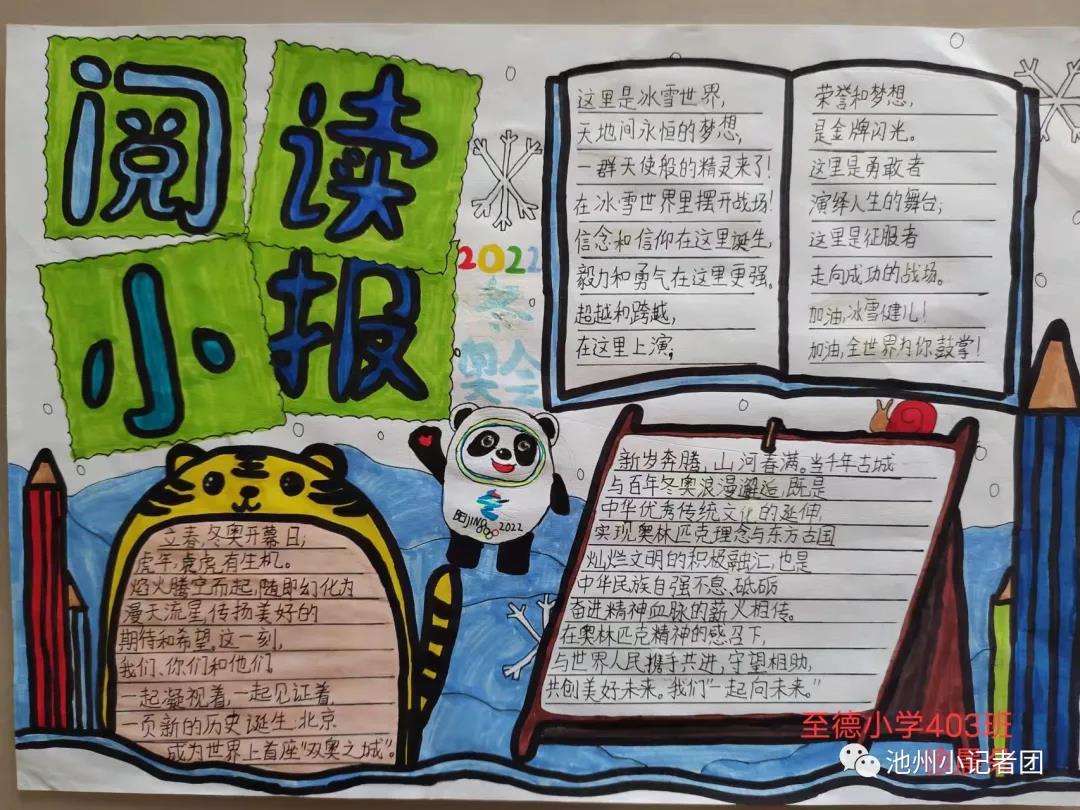 阅读
小报
2022
冬
奥会
这里是冰雪世界，
天地间永恒的梦想，
一群天使般的精灵来了！
在冰雪世界里摆开战场！
信念和信仰在这里诞生，
毅力和勇气在这里更强。
超越和跨越，
在这里上演，
荣誉和梦想，
是金牌闪光。
这里是勇敢者
演绎人生的舞台；
这里是征服者
走向成功的战场。
加油，冰雪健儿！
加油，全世界为你鼓掌！
BEIJING 2022
立春，冬奥开幕日；
虎年，虎虎有生机。
焰火腾空而起，随即幻化为
漫天流星，传扬美好的
期待和希望。这一刻，
我们、你们和他们
一起凝视着，一起见证着，
一页新的历史诞生：北京
成为世界上首座“双奥之城”。
新岁奔腾，山河春满。当千年古城
与百年冬奥浪漫邂逅，既是
中华优秀传统文化的延伸，
实现奥林匹克理念与东方古国
灿烂文明的积极融汇，也是
中华民族自强不息、砥砺
奋进精神血脉的薪火相传。
在奥林匹克精神的感召下，
与世界人民携手共进，守望相助，
共创美好未来。我们“一起向未来。”
至德小学403班
池州小记者团